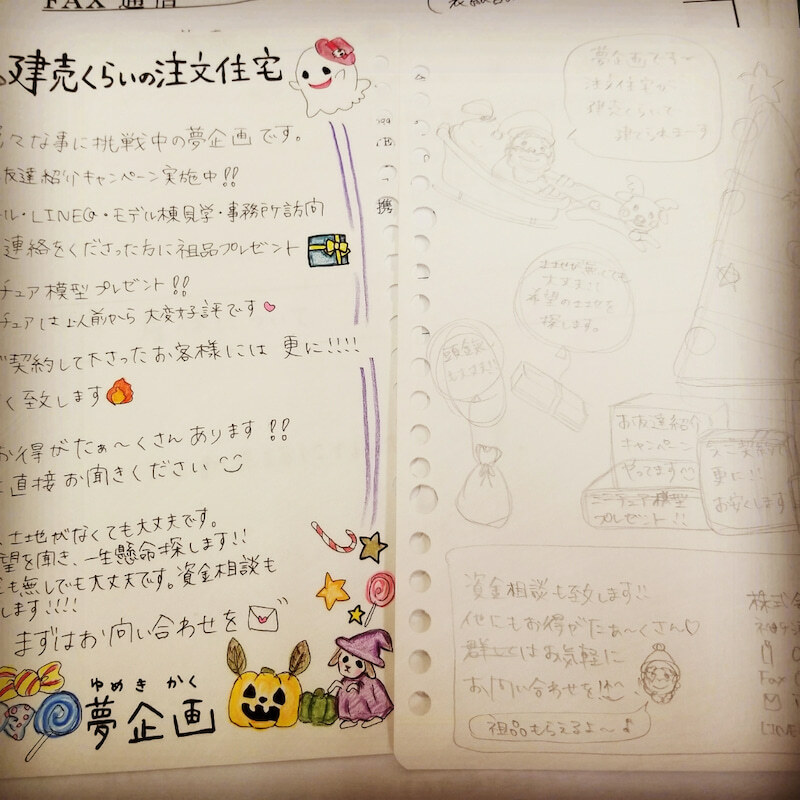 FAX 通信
建売くらいの注文住宅
な事に挑戦中の夢企画です。
友達紹介キャンペーン実施中!!
ル・LINE@・モデル棟見学・事務所訪問
連絡をくださった方に祖品プレゼント
チュア模型プレゼント!!
チュアは以前から大変好評です
契約して下さったお客様には 更に!!!!
く致します
お得がたぁ〜くさんあります!!
直接お聞きください
土地がなくても大丈夫です。
望を聞き、一生懸命探します!!
も無しでも大丈夫です。資金相談も
します!!!!
まずはお問い合わせを
ゆめきかく
夢企画
携
夢企画です
注文住宅が
建売くらいで
建てられまーす
土地が無くても
大丈夫!!
希望の土地を
探します。
頭金無し
お友達紹介
キャンペーン
やってます
ミニチュア模型
プレゼント!!
ご契約で
更に!!
お安くします
資金相談も致します!!
他にもお得がたぁ〜くさん♡
詳しくはお気軽に
お問い合わせを!!
祖品もらえるよ〜♪
株式会
Fax
LINE